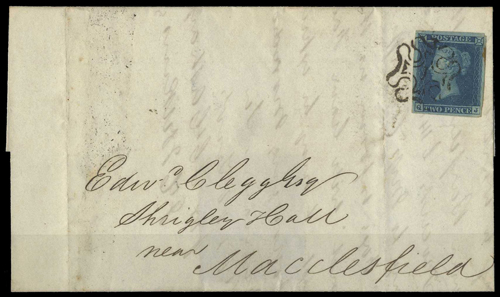 POSTAGE
TWO PENCE
Edwd Clegg Esq
Shrigley Hall
near
Macclesfield